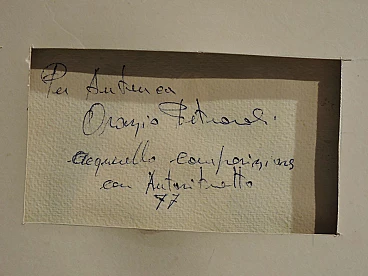 Per Autentica
Orazio
acquerello composizione
con Autoritratto
77